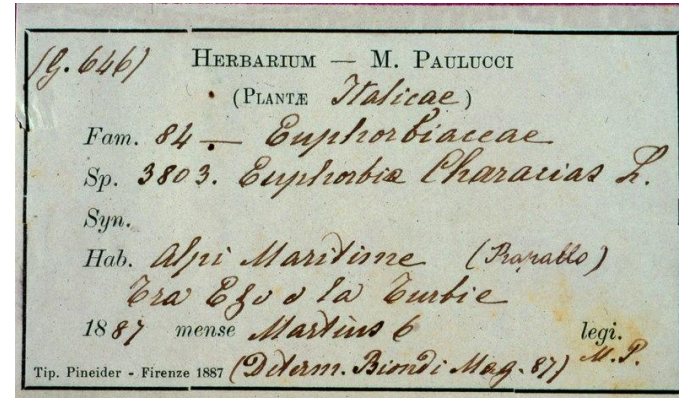 (G. 646) HERBARIUM — M. PAULUCCI
(PLANTÆ Italicae)
Fam. 84. — Euphorbiaceae
Sp. 3803. Euphorbia Characias L.
Syn.
Hab. Alpi Maritime (Rapallo)
Tra Eza e la Turbie
1887 mense Martius 6 legi.
Tip. Pineider - Firenze 1887 (Determ. Biondi Mag. 87) M. P.